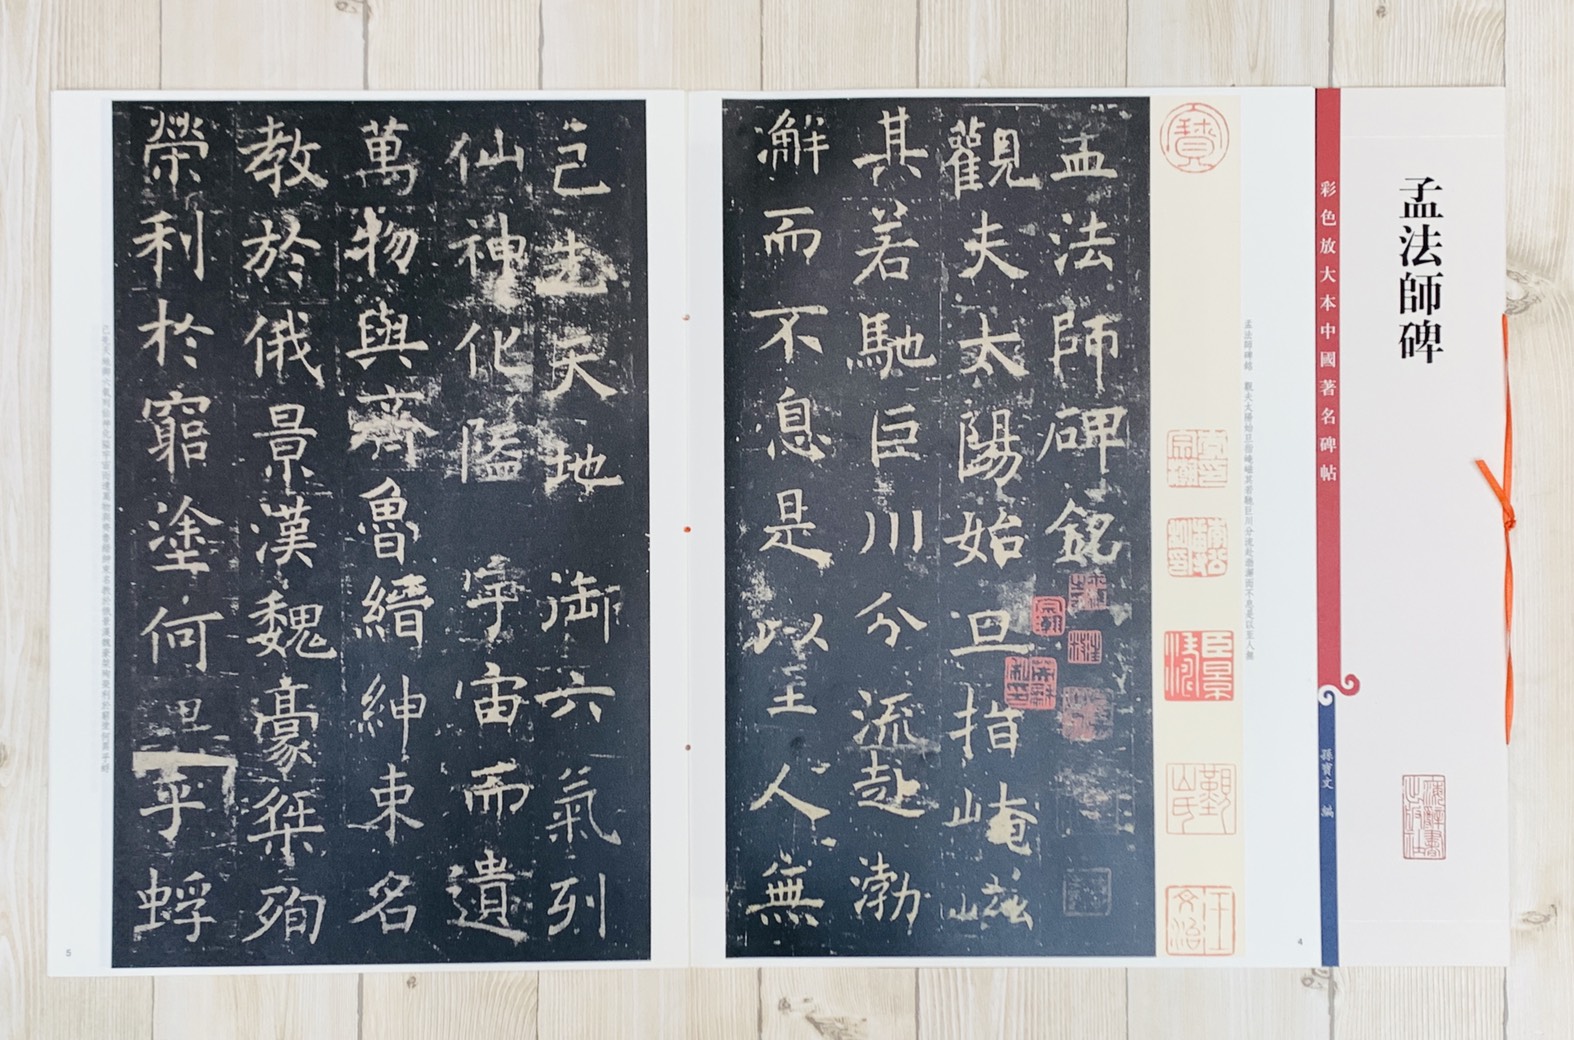 孟法師碑
彩色放大本中國著名碑帖
孫寶文 編
孟法師碑銘 觀夫太陽始旦指崦嵫其若馳巨川分流赴渤澥而不息是以至人無
孟法師碑銘
觀夫太陽始旦指崦嵫
其若馳巨川分流赴渤
澥而不息是以至人無
4
己先天地御六氣列
仙神化隘宇宙而遺
萬物與齊魯縉紳東名
教於俄景漢魏豪桀殉
榮利於窮塗何異乎蜉
己先天地御六氣列仙神化隘宇宙而遺萬物與齊魯縉紳東名教於俄景漢魏豪桀殉榮利於窮塗何異乎蜉
5